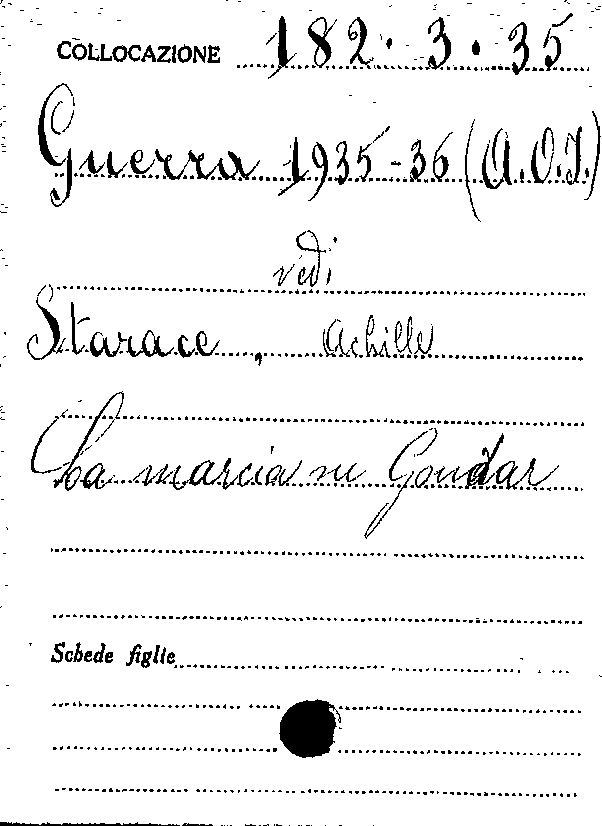 COLLOCAZIONE 182.3.35
Guerra 1935-36 (A.O.I.)
vedi
Starace, Achille
La marcia su Gondar
Schede figlie